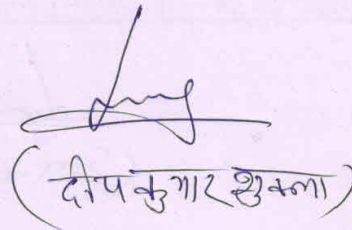 (दीप कुमार शुक्ला)